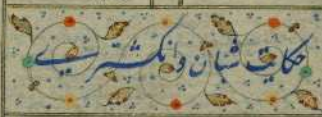 حکایت شبان و انگشتری